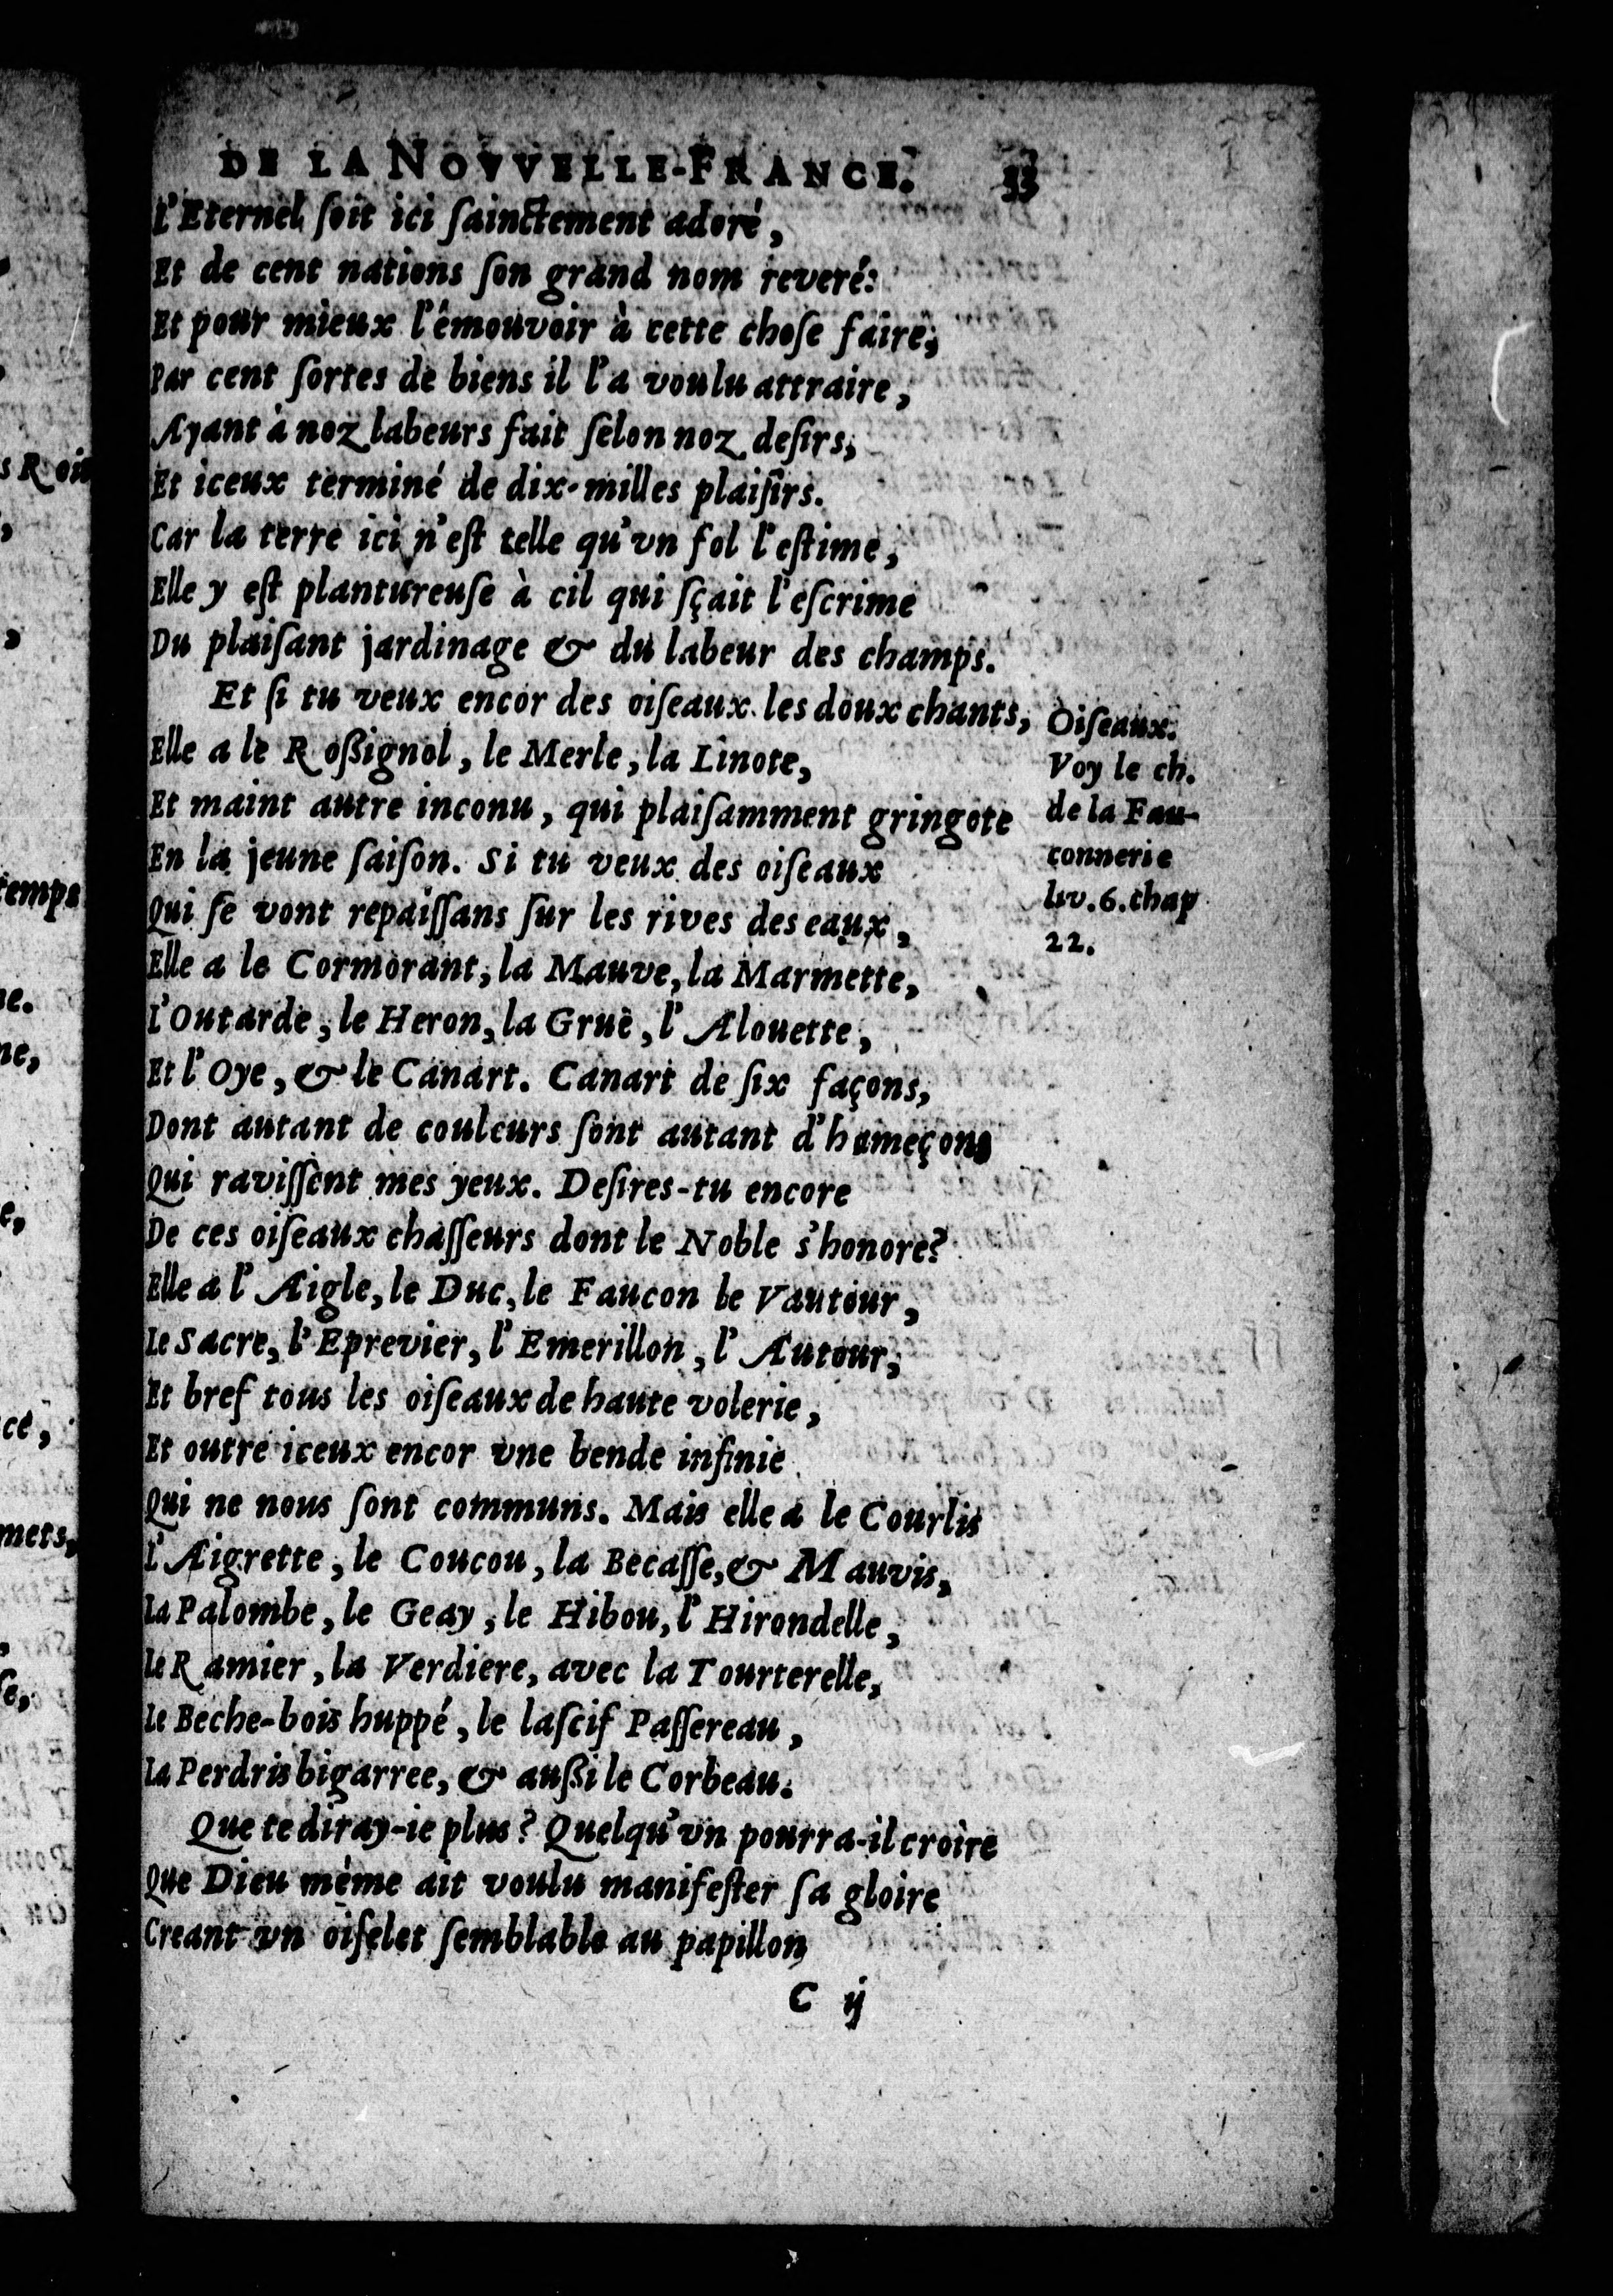 DE LA NOVVELLE-FRANCE. 33
L'Eternel ſoit ici ſainctement adoré,
Et de cent nations ſon grand nom reveré:
Et pour mieux l'émouvoir à cette choſe faire,
Par cent ſortes de biens il l'a voulu attraire,
Ayant à noz labeurs fait ſelon noz deſirs,
Et iceux terminé de dix-milles plaiſirs.
Car la terre ici n'eſt telle qu'vn fol l'eſtime,
Elle y eſt plantureuſe à cil qui ſçait l'eſcrime
Du plaiſant jardinage & du labeur des champs.
Et ſi tu veux encor des oiſeaux les doux chants,
Elle a le Roßignol, le Merle, la Linote,
Et maint autre inconu, qui plaiſamment gringote
En la jeune ſaiſon. Si tu veux des oiſeaux
Qui ſe vont repaiſſans ſur les rives des eaux,
Elle a le Cormorant, la Mauve, la Marmette,
L'Outarde, le Heron, la Gruë, l'Alouette,
Et l'Oye, & le Canart. Canart de ſix façons,
Dont autant de couleurs ſont autant d'hameçons
Qui raviſſent mes yeux. Deſires-tu encore
De ces oiſeaux chaſſeurs dont le Noble s'honore?
Elle a l'Aigle, le Duc, le Faucon le Vautour,
Le Sacre, l'Eprevier, l'Emerillon, l'Autour,
Et bref tous les oiſeaux de haute volerie,
Et outre iceux encor vne bende infinie
Qui ne nous ſont communs. Mais elle a le Courlis
L'Aigrette, le Coucou, la Becaſſe, & Mauvis,
La Palombe, le Geay, le Hibou, l'Hirondelle,
Le Ramier, la Verdiere, avec la Tourterelle,
Le Beche-bois huppé, le laſcif Paſſereau,
La Perdris bigarree, & außi le Corbeau.
Que te diray-ie plus? Quelqu'vn pourra-il croire
Que Dieu méme ait voulu manifeſter ſa gloire
Creant vn oiſelet ſemblable au papillon
C ij
Oiſeaux.
Voy le ch.
de la Fau-
connerie
liv. 6. chap
22.